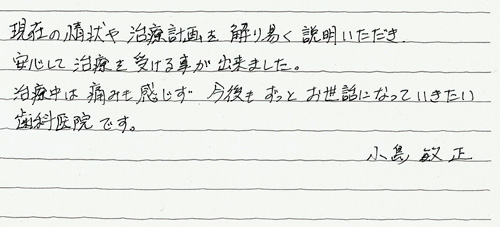 現在の情状や治療計画を解り易く説明いただき
安心して治療を受ける事が出来ました。
治療中は痛みも感じず今後もずっとお世話になっていきたい
歯科医院です。
小島敏正